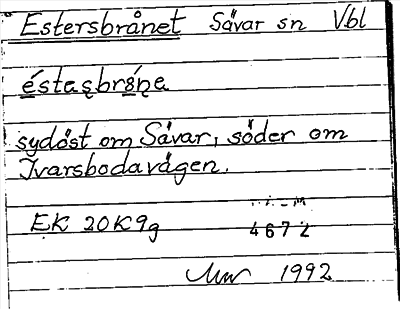 Estersbrånet Sävar sn Vbl
éstaṣbrǿ̀ṇa
sydöst om Sävar, söder om
Ivarsbodavägen.
EK 20K9g
4672
1992